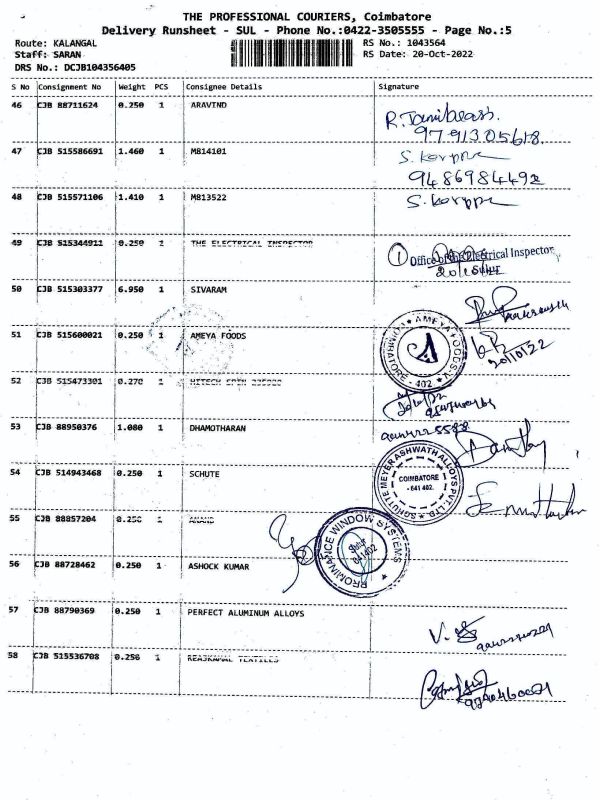 THE PROFESSIONAL COURIERS, Coimbatore
Delivery Runsheet - SUL - Phone No.:0422-3505555 - Page No.:5
Route: KALANGAL RS No.: 1043564
Staff: SARAN RS Date: 20-Oct-2022
DRS No.: DCJB104356405
S No Consignment No Weight PCS Consignee Details Signature
46 CJB 88711624 0.250 1 ARAVIND
9791305618.
47 CJB 515586691 1.460 1 M814101
9486984492
48 CJB 515571106 1.410 1 M813522
49 CJB 515344911 0.250 1 THE ELECTRICAL INSPECTOR
1 Office of the Electrical Inspector
50 CJB 515303377 6.950 1 SIVARAM
51 CJB 515600021 0.250 1 AMEYA FOODS
20/10/22
AMEYA FOODS
COIMBATORE - 402
52 CJB 515473301 0.270 1 HITECH
53 CJB 88950376 1.080 1 DHAMOTHARAN
54 CJB 514943468 0.250 1 SCHUTE
SCHUTTE MEYER ASHWATH ALLOYS PVT. LTD.
COIMBATORE
- 641 402.
55 CJB 88857204 0.250 1 ANAND
PROMINANCE WINDOW SYSTEMS
641402
56 CJB 88728462 0.250 1 ASHOCK KUMAR
57 CJB 88790369 0.250 1 PERFECT ALUMINUM ALLOYS
58 CJB 515536708 0.250 1 TEXTILES